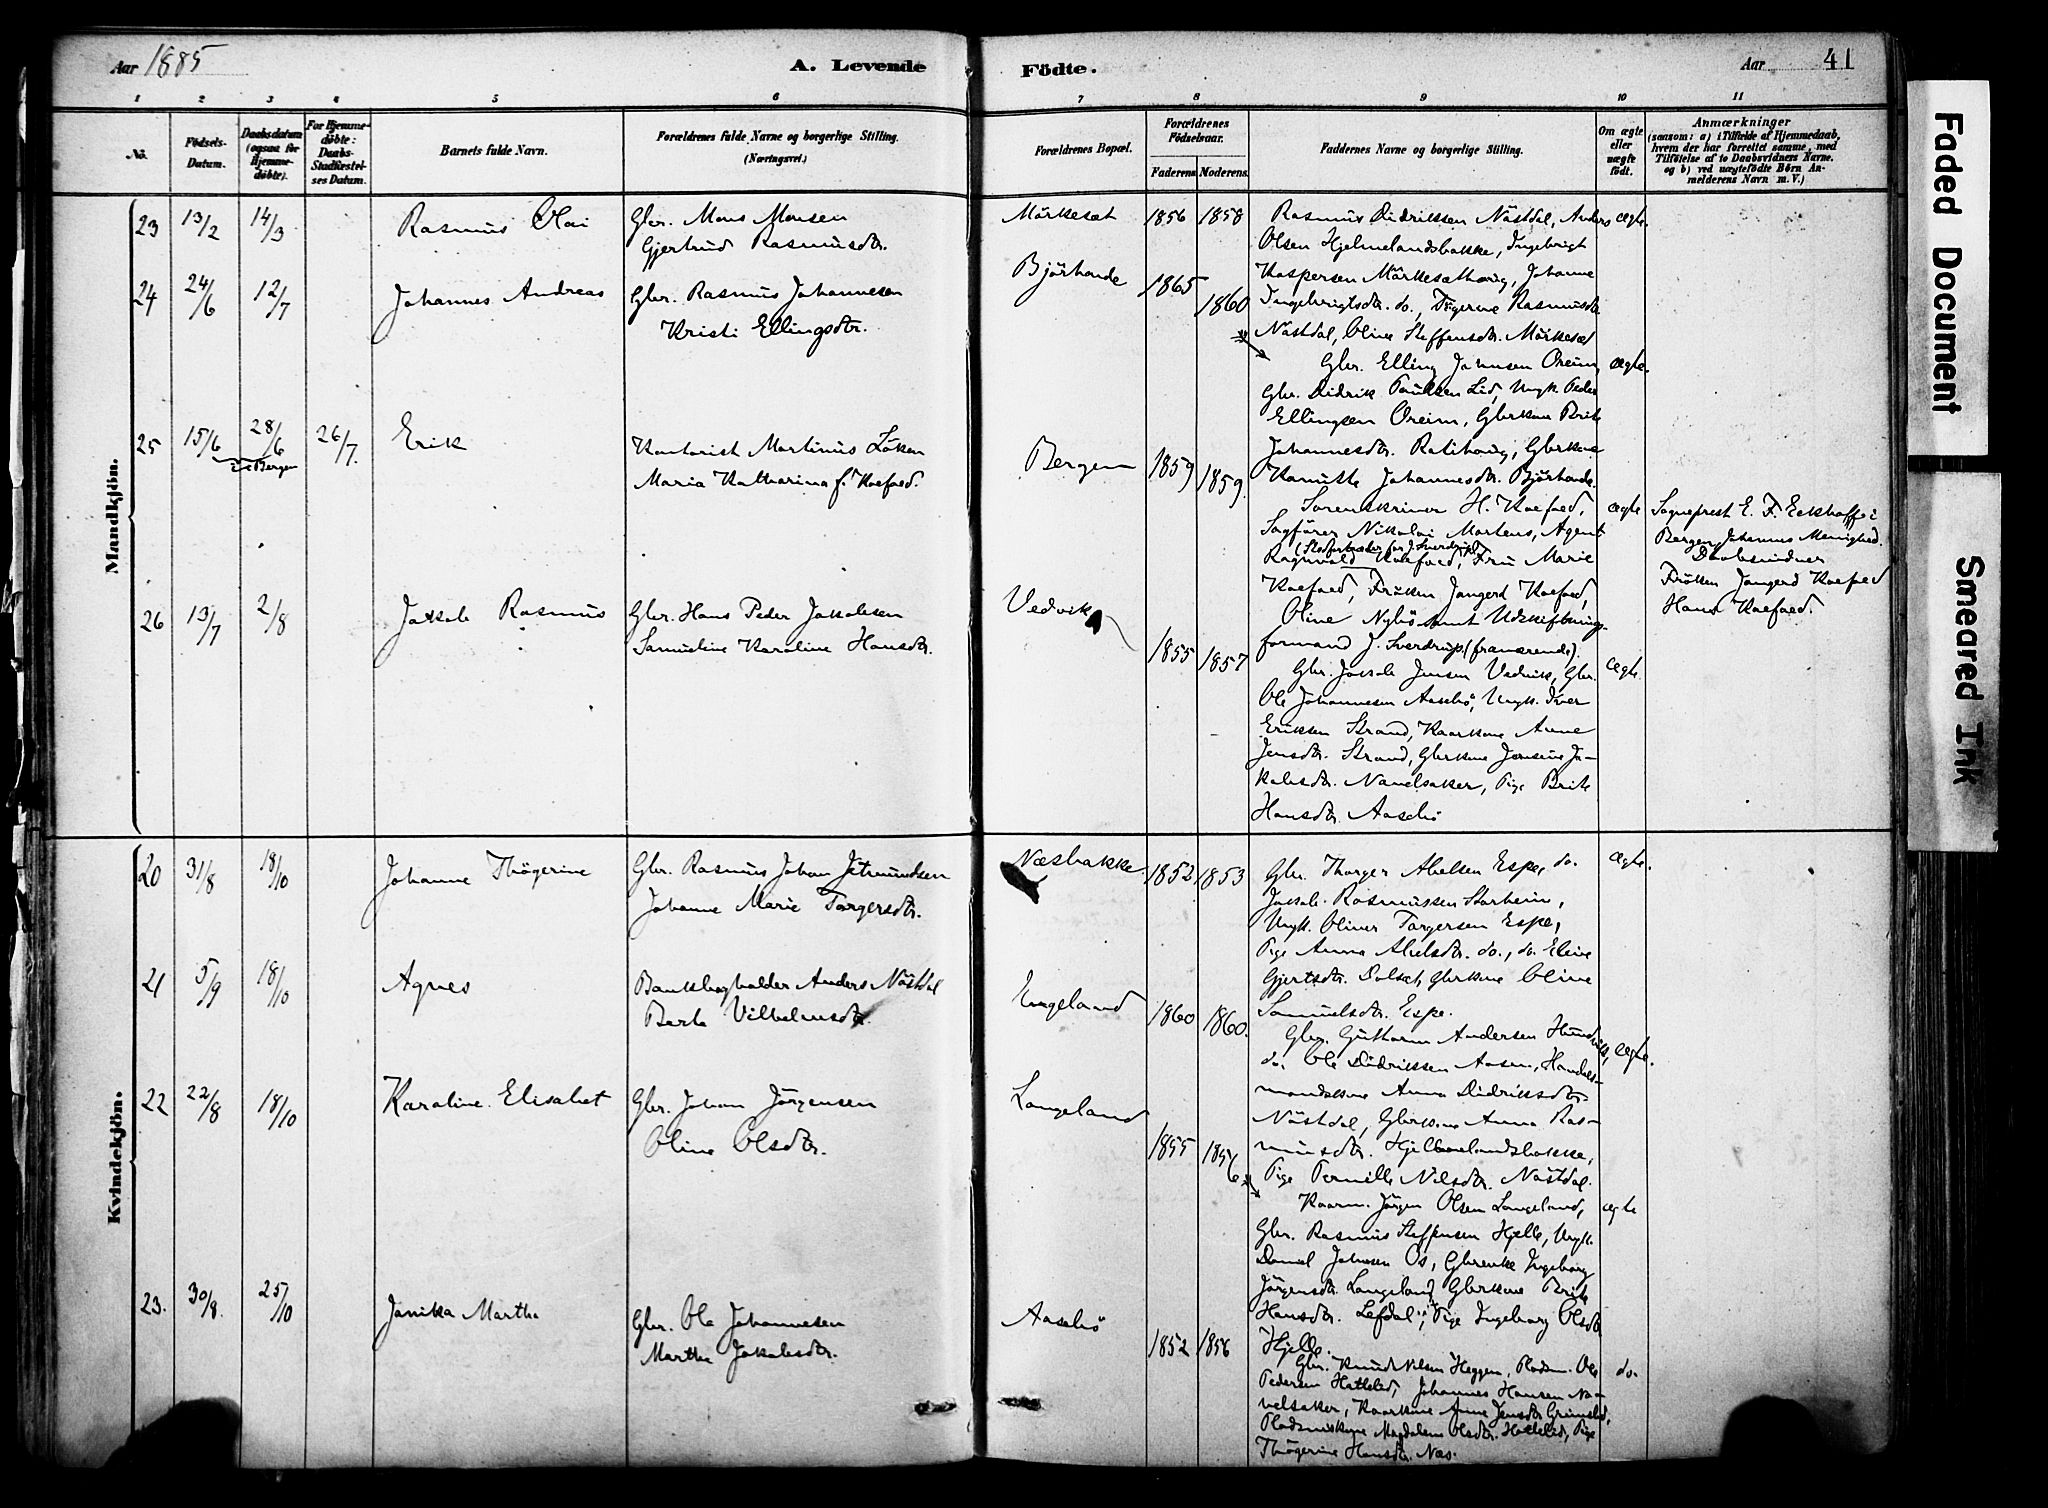 Aar 1885
A. Levende Födte.
Aar 41
1 2 3 4 5 6 7 8 9 10 11
No.
Födsels-Datum.
Daabsdatum (ogsaa for Hjemme-döbte).
For Hjemme-döbte: Daabs-Stadfæstel-ses Datum.
Barnets fulde Navn.
Forældrenes fulde Navne og borgerlige Stilling. (Næringsvei.)
Forældrenes Bopæl.
Forældrenes Födselsaar.
Faderens Moderens.
Faddernes Navne og borgerlige Stilling.
Om ægte eller uægte födt.
Anmærkninger
(saasom: a) i Tilfælde af Hjemmedaab, hvem der har forrettet samme, med Tilföielse af to Daabsvidners Navne, og b) ved uægtefödte Börn An-melderens Navn m. V.)
Mandkjön.
23 13/2 14/3 Rasmus Olai
Gbr. Mons Monsen
Gjertrud Rasmusdtr.
Mörkesæt 1856 1858
Rasmus Didriksen Nöstdal, Anders
Olsen Hjelmelandsbakke, Ingebrigt
Kaspersen Mörkesæthoug, Johanne
Ingebrigtsdtr. do., Thgerine Rasmusdtr.
Nöstdal, Oline Steffensdtr. Mörkesæt
ægte.
24 24/6 12/7 Johannes Andreas
Gbr. Rasmus Johannesen
Kristi Ellingsdtr.
Björhovde 1865 1860
Gbr. Elling Johnsen Oreim,
Gbr. Didrik Paulsen Lid, Ungk. Peder
Ellingsen Oreim, Gbrkone Brite
Johannesdtr. Ratihoug, Gbrkone
Kanutte Johannesdtr. Björhovde.
ægte.
25 15/6 28/6 26/7. Erik
i Bergen
Kontorist Martinus Löken
Maria Katharina f. Koefoed.
Bergen 1859 1859.
Sorenskriver H. Koefoed,
Sagförer Nikolai Martens, Agent
(Stedfortræder for J. Sverdrup)
Ragnvald Koefoed, Fru Marie
Koefoed, Fröken Jangerd Koefoed,
Oline Nybö samt Udskiftnings-
formand J. Sverdrup (fraværende).
ægte
Sogneprest E. F. Eckhoff i
Bergen Johannes Menighed.
Daabsvidner
Fröken Jangerd Koefoed
Hans Koefoed.
26 13/7 2/8 Jakob Rasmus
Gbr. Hans Peder Jakobsen
Samueline Karoline Hansdtr.
Vedvik 1855 1857
Gbr. Jakob Jensen Vedvik, Gbr.
Ole Johannesen Aasebö, Ungk. Iver
Eriksen Strand, Kaarkone Anne
Jensdtr. Strand, Gbrkone Jensine Ja-
kobsdtr. Navelsaker, Pige Brite
Hansdtr. Aasebö
ægte.
Kvindekjön.
20 31/8 18/10 Johanne Thögerine
Gbr. Rasmus Johan Jetmundsen
Johanne Marie Torgersdtr.
Næsbakke 1852 1853
Gbr. Thorger Abelsen Espe, do.
Jakob Rasmussen Storheim,
Ungk. Oliver Torgersen Espe,
Pige Anna Abelsdtr. do., do. Eline
Gjertsdtr. Dalset, Gbrkone Oline
Samuelsdtr. Espe.
ægte.
21 5/9 18/10 Agnes
Bankbogholder Anders Nöstdal
Berte Vilhelmsdtr.
Engeland 1860 1860.
Gbr. Guttorm Andersen Hundvik,
do. Ole Didriksen Aasen, Handels-
mandskone Anna Didriksdtr.
Nöstdal, Gbrkone Anna Ras-
musdtr. Hjelmelandsbakke,
Pige Pernille Nilsdtr. Nöstdal.
ægte.
22 22/8 18/10 Karoline Elisabet
Gbr. Johan Jörgensen
Oline Olsdtr.
Langeland 1855 1856
Kaarm. Jörgen Olsen Langeland,
Gbr. Rasmus Steffensen Hjelle, Ungk.
Daniel Johnsen Os, Gbrenke Ingeborg
Jörgensdtr. Langeland, Gbrkone Brite
Hansdtr. Lefdal, Pige Ingeborg Olsdtr
Hjelle.
ægte
23. 30/8. 25/10 Janika Marthe
Gbr. Ole Johannesen
Marthe Jakobsdtr.
Aasebö 1852 1856
Gbr. Knud Nilsen Heggen, Pladsm. Ole
Pedersen Hatteled, Johannes Hansen Na-
velsaker, Kaarkone Anne Jensdtr Grimsled,
Pladsmskone Magdalene Olsdtr. Hatteled, Pige
Thögerine Hansdtr. Næs.
do.
Faded Document
Smeared Ink